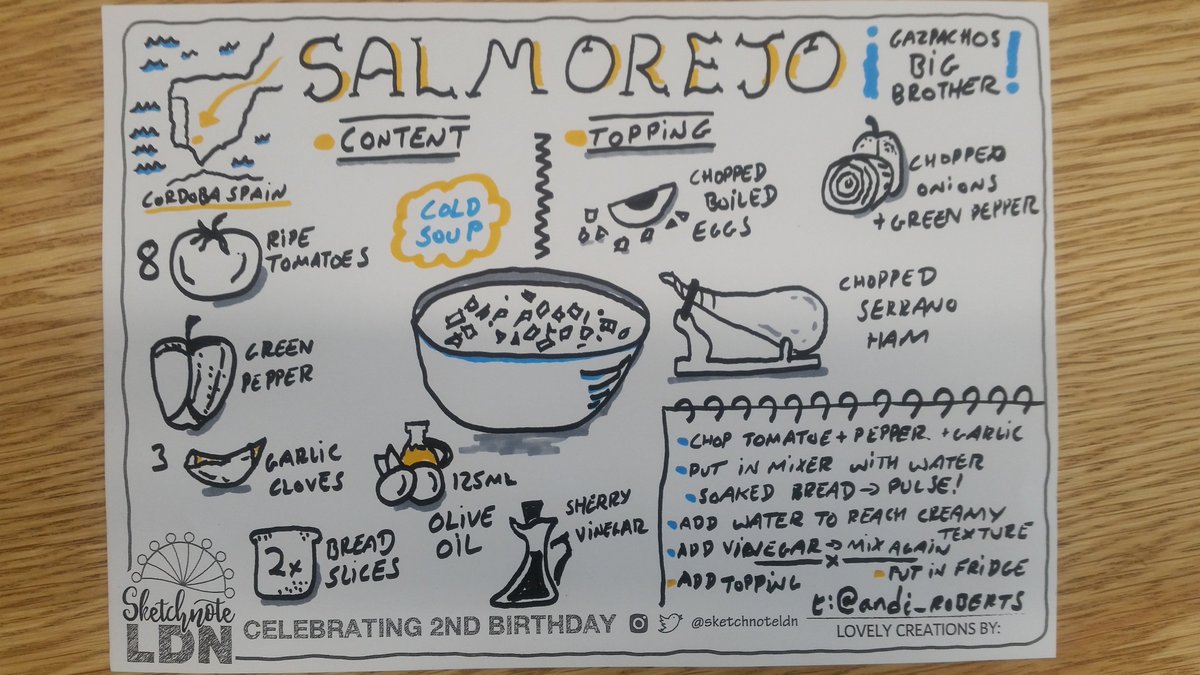 SALMOREJO
¡GAZPACHOS
BIG
BROTHER!
CORDOBA SPAIN
CONTENT
COLD
SOUP
8 RIPE
TOMATOES
GREEN
PEPPER
3 GARLIC
CLOVES
125ML
OLIVE
OIL
2x BREAD
SLICES
SHERRY
VINEGAR
TOPPING
CHOPPED
BOILED
EGGS
CHOPPED
ONIONS
+ GREEN PEPPER
CHOPPED
SERRANO
HAM
CHOP TOMATOE + PEPPER + GARLIC
PUT IN MIXER WITH WATER
SOAKED BREAD → PULSE!
ADD WATER TO REACH CREAMY
TEXTURE
ADD VINEGAR → MIX AGAIN
PUT IN FRIDGE
ADD TOPPING
t:@andi_ROBERTS
LOVELY CREATIONS BY:
Sketchnote
LDN
CELEBRATING 2ND BIRTHDAY @sketchnoteldn